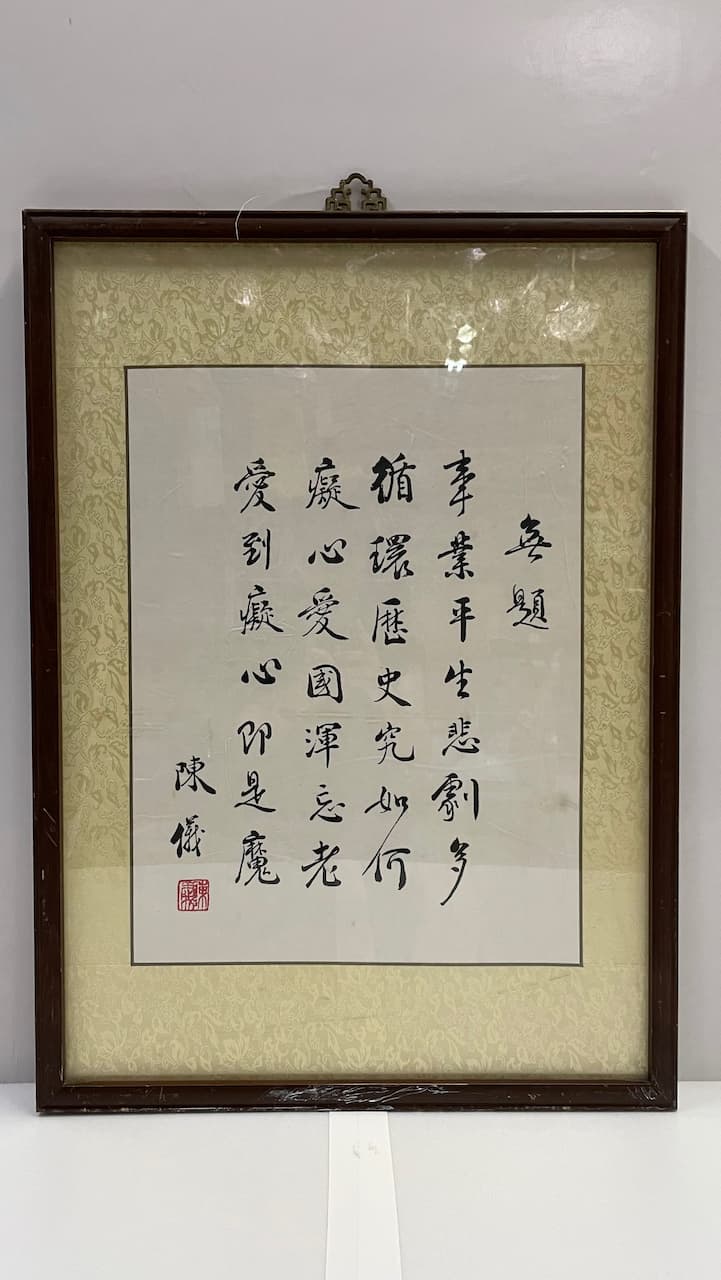 無題
事業平生悲劇多
循環歷史究如何
癡心愛國渾忘老
愛到癡心即是魔
陳儀